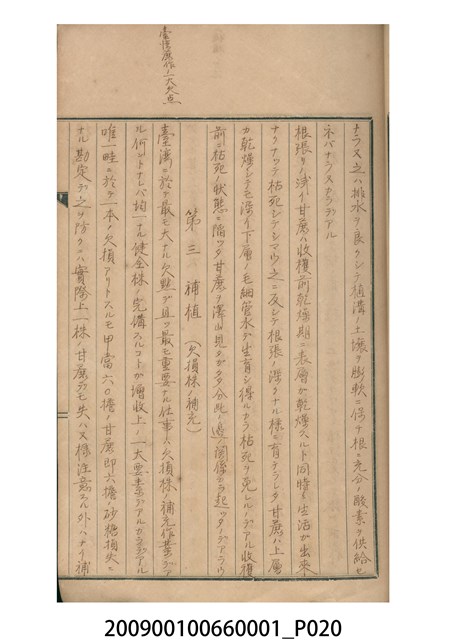 臺灣蔗作ノ一大欠点
ナラヌ之ハ排水ヲ良クシテ植溝ノ土壌ヲ膨軟ニ保チ根ニ充分ノ酸素ヲ供給セ
ネバナラヌカラデアル
根張リノ浅イ甘蔗ハ收穫前乾燥期ニ表層ガ乾燥スルト同時ニ生活ガ出来
ナクナッテ枯死シテシマウ之ニ反シテ根張ノ深クナル様ニ育テラレタ甘蔗ハ上層
ガ乾燥シテモ深イ下層ノ毛細管水デ生育シ得ルカラ枯死ヲ免レルノデアル收穫
前ニ枯死ノ状態ニ陥ッタ甘蔗ヲ澤山見タガ多分此ノ邊ノ関係カラ起ッタノデアラウ
第三 補植（欠損株ノ補充）
臺灣ニ於テ最モ大ナル欠點デ且ツ最モ重要ナ仕事ハ欠損株ノ補充作業デア
ル何ントナレバ均一ナル健全株ノ完備スルコトガ増收上ノ一大要素デアルカラデアル
唯一畦ニ於テ一本ノ欠損アリトスルモ甲當六〇擔ノ甘蔗即六擔ノ砂糖損失ニ
ナル勘定デ之ヲ防クニハ實際上一株ノ甘蔗ヲモ失ハヌ様注意スル外ハナイ補
200900100660001_P020